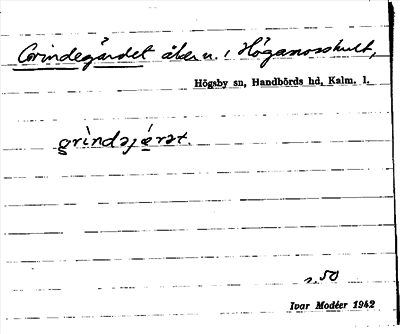 Grindegärdet åker u. / Höganosskult,
Högsby sn, Handbörds hd, Kalm. l.
grìndəjǽrət.
s. 50
Ivar Modéer 1942